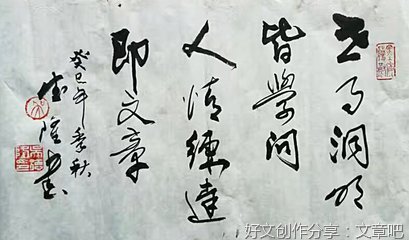 世事洞明
皆学问
人情练达
即文章
癸巳年季秋
好文创作分享：文章吧